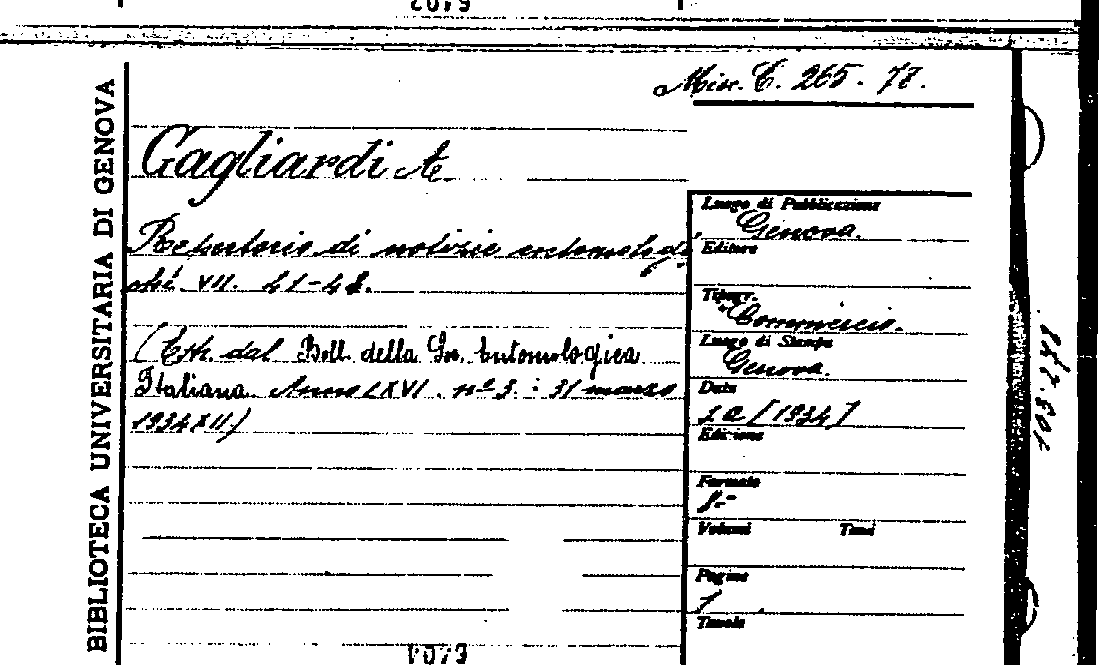 Misc. C. 265. 78.
BIBLIOTECA UNIVERSITARIA DI GENOVA
Gagliardi A.
Repertorio di notizie entomologi
che. VII. 41-48.
(Estr. dal Boll. della Soc. Entomologica
Italiana. Anno LXVI. nº 3. : 31 marzo
1934 XII)
Luogo di Pubblicazione
Genova.
Editore
Tipogr.
Commercio.
Luogo di Stampa
Genova.
Data
s.a [1934]
Edizione
Formato
8º
Volumi Tomi
Pagine
Tavole